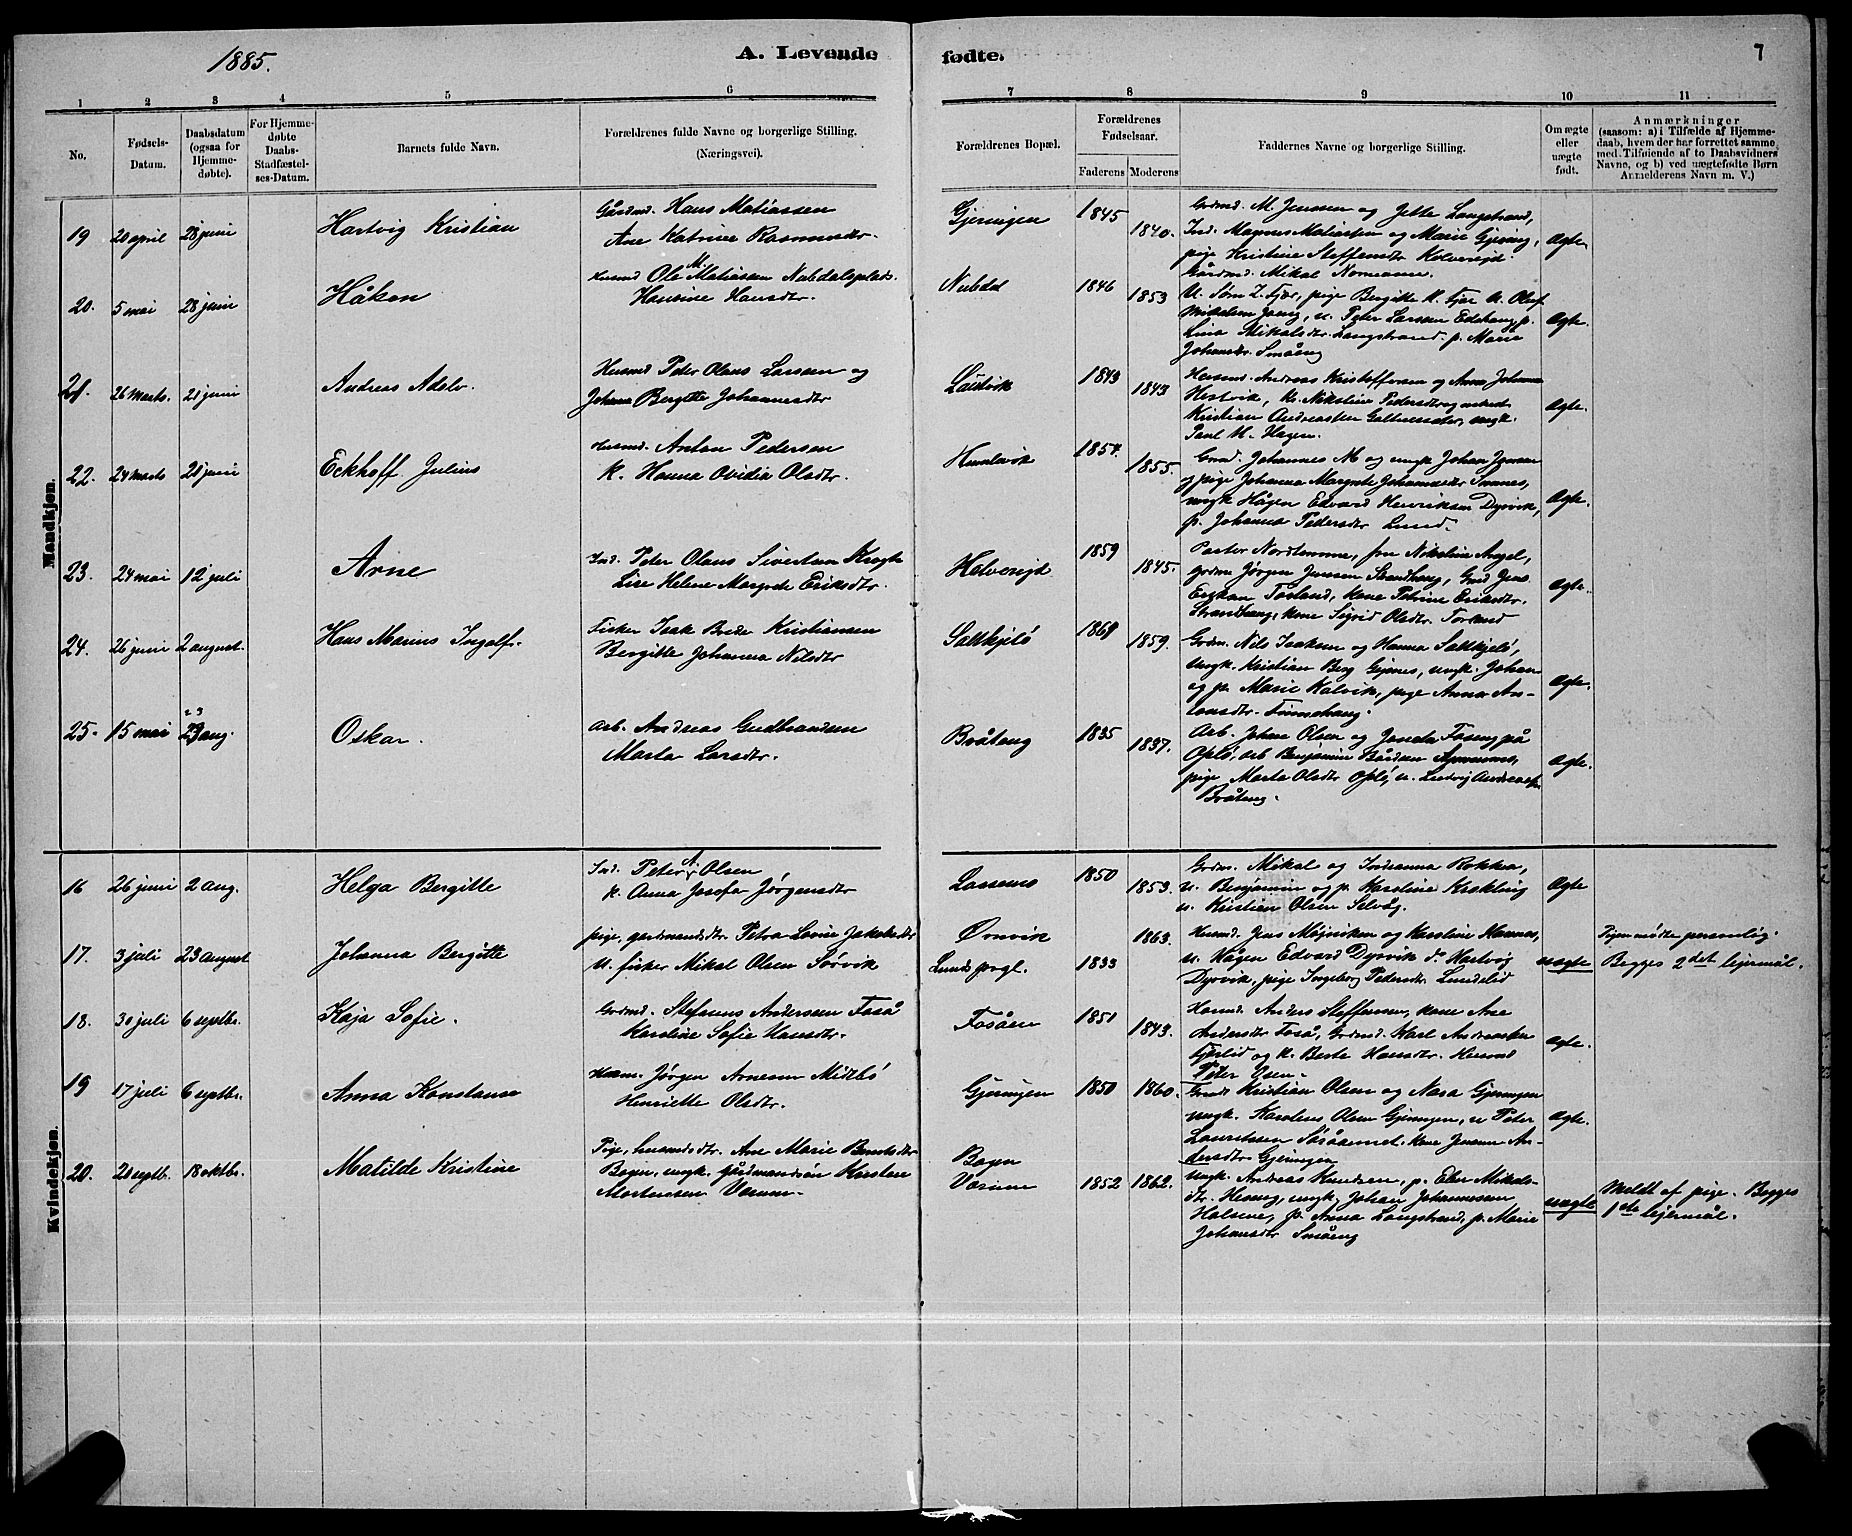 1885.
A. Levende fødte.
7
1 2 3 4 5 6 7 8 9 10 11
No.
Fødsels-Datum.
Daabsdatum (ogsaa for Hjemme-døbte).
For Hjemme-døbte Daabs-Stadfæstel-ses-Datum.
Barnets fulde Navn.
Forældrenes fulde Navne og borgerlige Stilling.
(Næringsvei).
Forældrenes Bopæl.
Forældrenes Fødselsaar.
Faderens Moderens
Faddernes Navne og borgerlige Stilling.
Om ægte eller uægte født.
Anmærkninger
(saasom: a) i Tilfælde af Hjemme-
daab, hvem der har forrettet samme
med Tilføiende af to Daabsvidners
Navne, og b) ved uægtefødte Børn
Anmelderens Navn m. V.)
Mandkjøn.
19 20 april 28 juni Hartvig Kristian
Gårdmd. Hans Matiassen
Ane Katrine Rasmusdtr.
Gjeringen 1845 1840.
Grdmd. M. Jenssen og Jette Langstrand,
Ind. Magnus Matiassen og Marie Gjering,
pige Kristine Steffensdtr Kolverejd
Gårdmd. Mikal Normann.
Ægte.
20. 5 mai 28 juni Håkon
Husmd Ole M. Matiassen Nubdalsplads.
Hansine Hansdtr.
Nubdal 1846 1853
U. Sørn Z. Fjær, pige Bergitte K. Fjær u. Oluf
Mikalsen, u. Peter Larssen Edshaug, p.
Lina Mikalsdtr. Langstrand. p. Marie
Johansdtr. Småeng
Ægte.
21. 26 Marts. 21 juni Andreas Adolv.
Husmd Peter Olaus Larssen og
Johana Bergitte Johannesdtr
Laulvik 1843 1843
Husmd. Andreas Kristoffersen og Anna Johanna
Hestvik, K. Nikoline Pedersdtr og
Kristian Andreassen, ungk.
Paul M. Hagen.
Ægte.
22. 24 Marts 21 juni Eckhoff Julius
Husmd. Anton Pedersen
K. Hanna Ovidia Olsdtr.
1854. 1855.
Grmd. Johannes M og ungk Johan
og pige Johanna Margrete Johannesdtr
ungk Hågen Edvard Henriksen Dyrvik,
p. Johanna Pedersdtr Lund.
Ægte.
23. 24 mai 12 juli Arne
Ind. Peter Olaus Sivertsen Krogh
Lise Helene Margrete Eriksdtr.
Kolverejd 1859 1845.
Pastor Nordtømme, fru Nikoline Angel,
Grdm Jørgen Jenssen Strandhaug, Grmd Jens
Torland, kone Petrine Eriksdtr.
Strandhaug, kone Sigrid Olsdtr. Torland
Ægte.
24. 26 juni 2 august. Hans Marius Ingolf.
Fisker Isak Brede Kristiansen
Bergitte Johanna Nilsdtr
Saltkjelö 1869 1859.
Grdm. Nils Isaksen og Hanna Saltkjelö,
ungk. Kristian Berg Gjesnes, ungk. Johan
og p. Marie Kalvik, pige Anna An-
tonsdtr. Finnehaug.
Ægte.
25. 15 mai 23 23 aug. Oskar.
Arb. Andreas Gudbrandsen
Marta Larsdtr.
Bråteng 1835 1837.
Arb. Johan Olsen og Janeta Foseng på
Opló, arb Benjamin Bårdsen
pige Marta Olsdtr Opló, u. Ludvig Andreassen
Bråteng.
Ægte.
Kvindekjøn.
16 26 juni 2 aug. Helga Bergitte
Ind. Peter N. Olsen
k. Anna Josefa Jørgensdtr
Lassemo 1850 1853.
Grdm. Mikal og Indianna Rokka,
u. Benjamin og p. Karoline Kvækling
u. Kristian Olsen Selvåg.
Ægte
17. 3 juli 23 august Johanna Bergitte
pige, gardmandsdtr. Petra Lovise Jakobsdtr
u. fisker Mikal Olsen Sørvik
Ørnvik
Lunds prgl. 1833 1863.
Husmd. Jens Möjniken og Karoline Hamnes,
u. Hågen Edvard Dyrvik d. Hartvig
Dyrvik, pige Ingeborg Pedersdtr Lundslid
uægte
Pigen mødte personlig.
Begges 2det lejermål.
18. 30 juli 6 septbr. Kaja Sofie.
Grdmd. Stefanus Anderssen Foså
Karoline Sofie Hansdtr.
Fosåen 1851 1843.
Husmd. Anders Steffensen, kone Ane
Andersdtr Foså, Grdmd. Karl Andreassen
Fjerlid og K. Berte Hansdtr. Husmd
Peter Ysen.
Ægte.
19 17 juli 6 septbr. Anna Konstanse
Husm. Jørgen Arnesen Midtbö
Henriette Olsdtr.
Gjeringen 1850 1860.
Grmd. Kristian Olsen og Nora Gjeringen
ungk. Karolius Olsen Gjeringen, u Peter
Lauritssen, kone Jensine An-
dersdtr Gjeringen
Ægte.
20. 20 septb. 18 oktbr. Matilde Kristine
Pige, husmdsdtr. Ane Marie Berntsdtr
Bogen, ungk. gårdmandsön Kristen
Mortensen Værum.
Bogen
Værum 1852 1862.
Ungk. Andreas Knudsen, p. Elen Mikals-
dtr. Heseng, ungk. Johan Johannesen
Halsene, p. Anna Langstrand, p. Marie
Johansdtr Småeng
uægte
Meldt af pige. Begges
1ste lejermål.